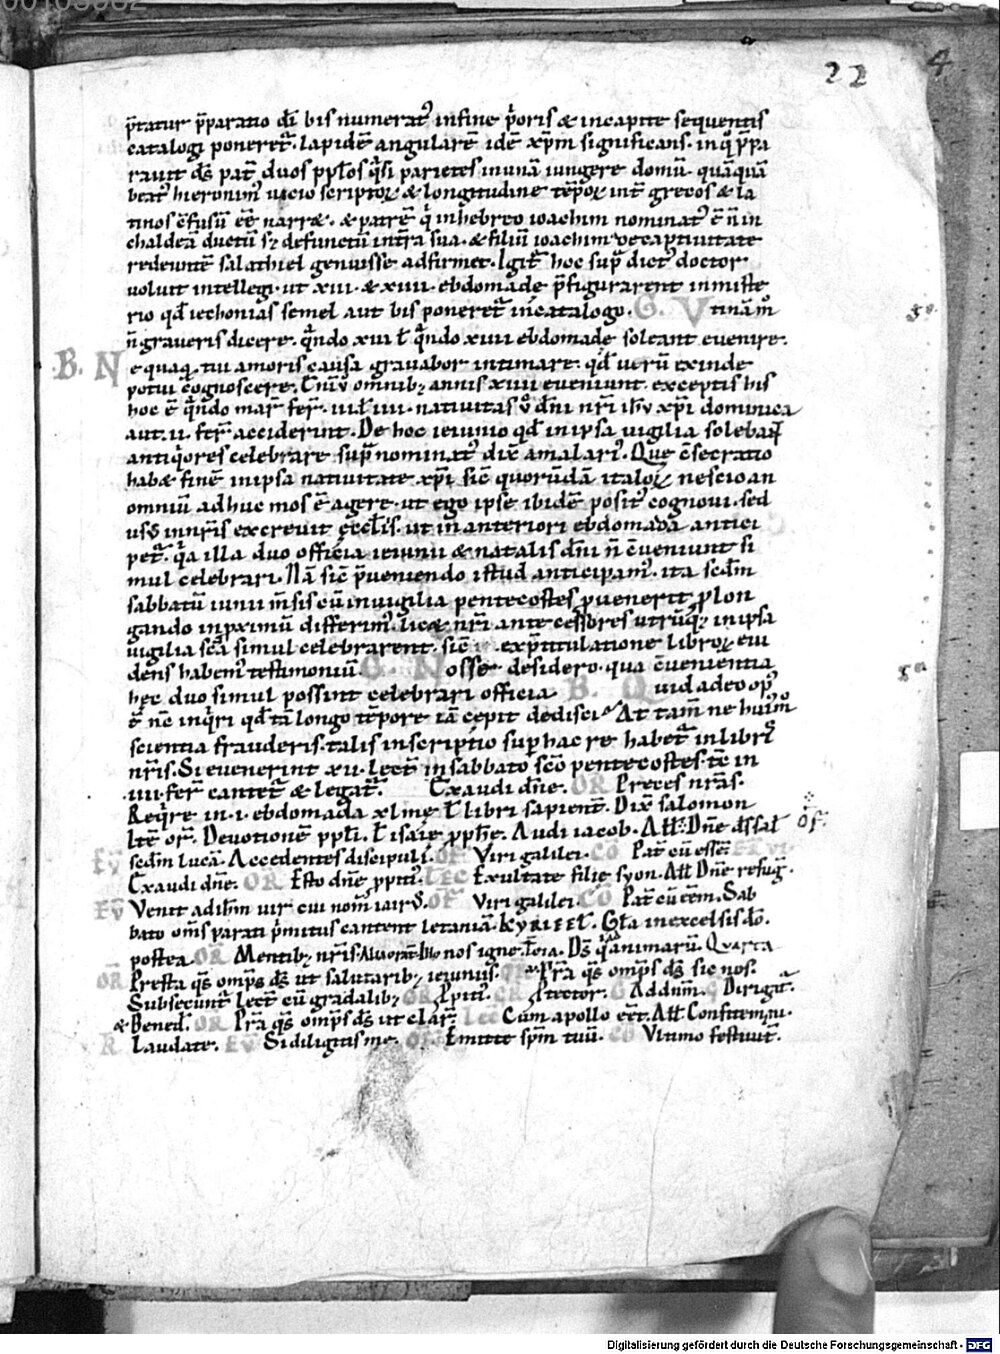 22
4
p̄tatur p̄paratio dn̄i bis numeratꝰ in fine p̄oris & in capite sequentis
catalogi poneret̄. lapidē angularē idē xp̄m significans. in q͛ p̄pa
rauit ds̄ pat̄ duos pp̄los q͛si parietes in unā iungere domū. quāquā
beatꝰ hieronimꝰ uicio scriptoꝝ & longitudine tēpoꝝ int̄ grecos & la
tinos c̄fusū eē narr&. & patrē q͛ in hebreo ioachim nominatꝰ ē n̄ in
chaldeā ductū sꝫ defunctū in tr̄a sua. & filiū ioachim de captiuitate
redeuntē salathiel genuisse adfirmet. Igit̄ hoc sup̄ dictꝰ doctor
uoluit intellegi. ut xiii. & xiiii. ebdomade p̄figurarent in miste
rio qd̄ iechonias semel aut bis poneret̄ in catalogo. G. Vtinā m͛
n̄ graueris dicere. q͛ndo xiii ł q͛ndo xiiii ebdomade soleant euenire.
.B. Nequaq̄ tui amoris causa grauabor intimare. qd̄ uerū exinde
potui c̄gnoscere. Cūv̄ omnibꝫ annis xiiii eueniunt. exceptis his
hoc ē q͛ndo mar̄ fer̄. iii. ł iiii. natiuitas v̄ dn̄i nr̄i ih̄v xp̄i dominica
aut. ii. fer̄ acciderint. De hoc ieiunio qd̄ in ipsa uigilia solebant̄
antiq͛ores celebrare sup̄nominatꝰ dix̄ amalariꝰ. Que c̄secratio
hab& finē in ipsa natiuitate xp̄i. sic̄ quorūdā italoꝝ nescio an
omniū adhuc mos ē agere. ut ego ipse ibidē positꝰ cognoui. sed
usꝰ in nr̄is excreuit ęccl̄iis. ut in anteriori ebdomada antici
pet̄. q͛a illa duo officia ieiunii & natalis dn̄i n̄ c̄ueniunt si
mul celebrari. Nā sic̄ p̄ueniendo istud anticipamꝰ. ita scd̄m
sabbatū iunii m̄sis cū in uigilia pentecostes ꝓuenerit ꝓlon
gando in ꝓximū differimꝰ. lic& nr̄i antecessores utrūqꝫ in ipsa
uigilia sc̄a simul celebrarent. sic̄ ex p̄titulatione libroꝝ eui
dens habemꝰ testimoniū. G. Nosse desidero. qua c̄uenientia
hęc duo simul possint celebrari officia. B. Quid adeo opꝰ
ē nc̄ inq͛ri qd̄ tā longo tēpore iā cepit dedisci. At tam̄ ne huiꝰm͛
scientia frauderis. talis inscriptio sup hac re habet̄ in libriꝰ
nr̄is. Si euenerint xii. lect̄ in sabbato sc̄o pentecostes. tc̄ in
.iiii. fer̄ cantet̄ & legat̄. Exaudi dn̄e. OR Preces nr̄as.
Req͛re in .i. ebdomada xlmę ł libri sapient̄. Dix̄ salomon
It̄e or̄. Deuotionē ppl̄i. ł isaię pph̄e. Audi iacob. All̄. Dn̄e ds̄ sal̄ Of̄.
EV̄ scd̄m lucā. Accedentes discipuli. OF Viri galilei. CO Pat̄ cū essē EX VI
Exaudi dn̄e. OR Esto dn̄e ꝓpitꝰ. LEC Exultate filię syon. All̄ Dn̄e refuḡ.
EV̄ Venit ad ih̄m uir cui nom̄ iairꝰ. OF Viri galilei. CO Pat̄ cū eēm. Sab
bato om̄s parati p̄mitus cantent letaniā. KYRIEEL. Gl̄a in excelsis dō.
postea OR Mentibꝫ nr̄is. Ds̄ q͛ animarū. Quarta
OR Presta qs̄ omp̄s ds̄ ut salutaribꝫ ieiuniis. Pr̄a qs̄ omp̄s ds̄ sic nos.
Subsecunt̄ lect̄ cū gradalibꝫ Ꝓpitꝰ. Ꝓtector. G Ad dn̄m. Dirigat̄.
& Bened̄. OR Pr̄a qs̄ omp̄s ds̄ ut clar̄. LEC Cum apollo eēt. All̄. Confitemini.
R Laudate. EV̄ Si diligitis me. OF Emitte sp̄m tuū. CO Vltimo festiuit̄.
Digitalisierung gefördert durch die Deutsche Forschungsgemeinschaft - DFG